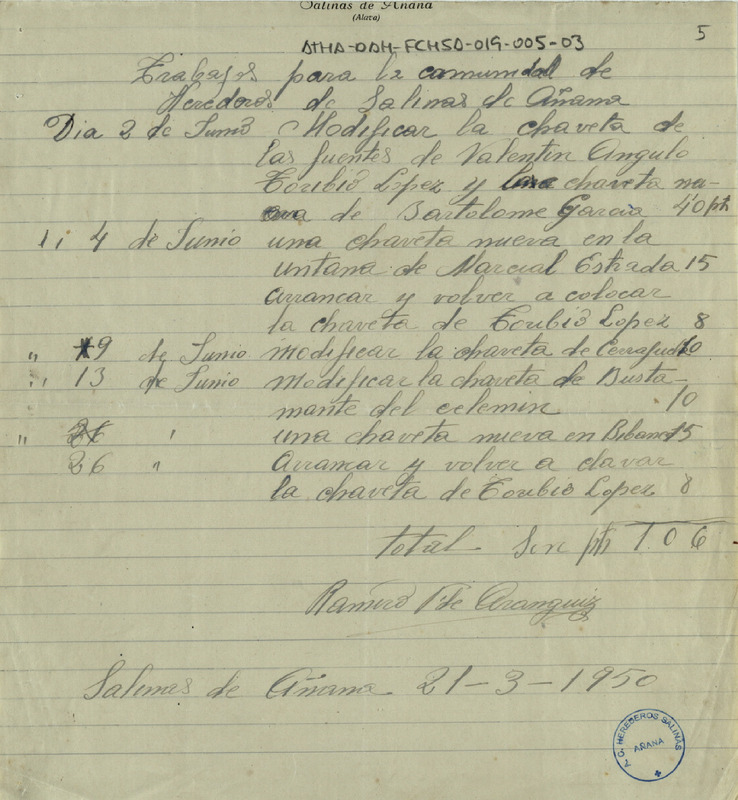 Salinas de Añana
(Alava)
5
ATHA-DAH-FCHSA-019-005-03
Trabajos para la comunidad de
Herederos de Salinas de Añana
Dia 2 de Junio Modificar la chaveta de
las fuentes de Valentin Angulo
Toribio Lopez y una chaveta nu-
eva de Bartolome Garcia 40 pts
" 4 de Junio una chaveta nueva en la
untana de Marcial Estrada 15
arrancar y volver a colocar
la chaveta de Toribio Lopez 8
" 9 de Junio modificar la chaveta de 10
" 13 de Junio modificar la chaveta de Busta-
mante del celemin 10
" 26 " una chaveta nueva en 15
26 " Arramar y volver a clavar
la chaveta de Toribio Lopez 8
total Son pts 106
Ramiro de Aranguiz
Salinas de Añana 21-3-1950
HEREDEROS SALINAS
AÑANA